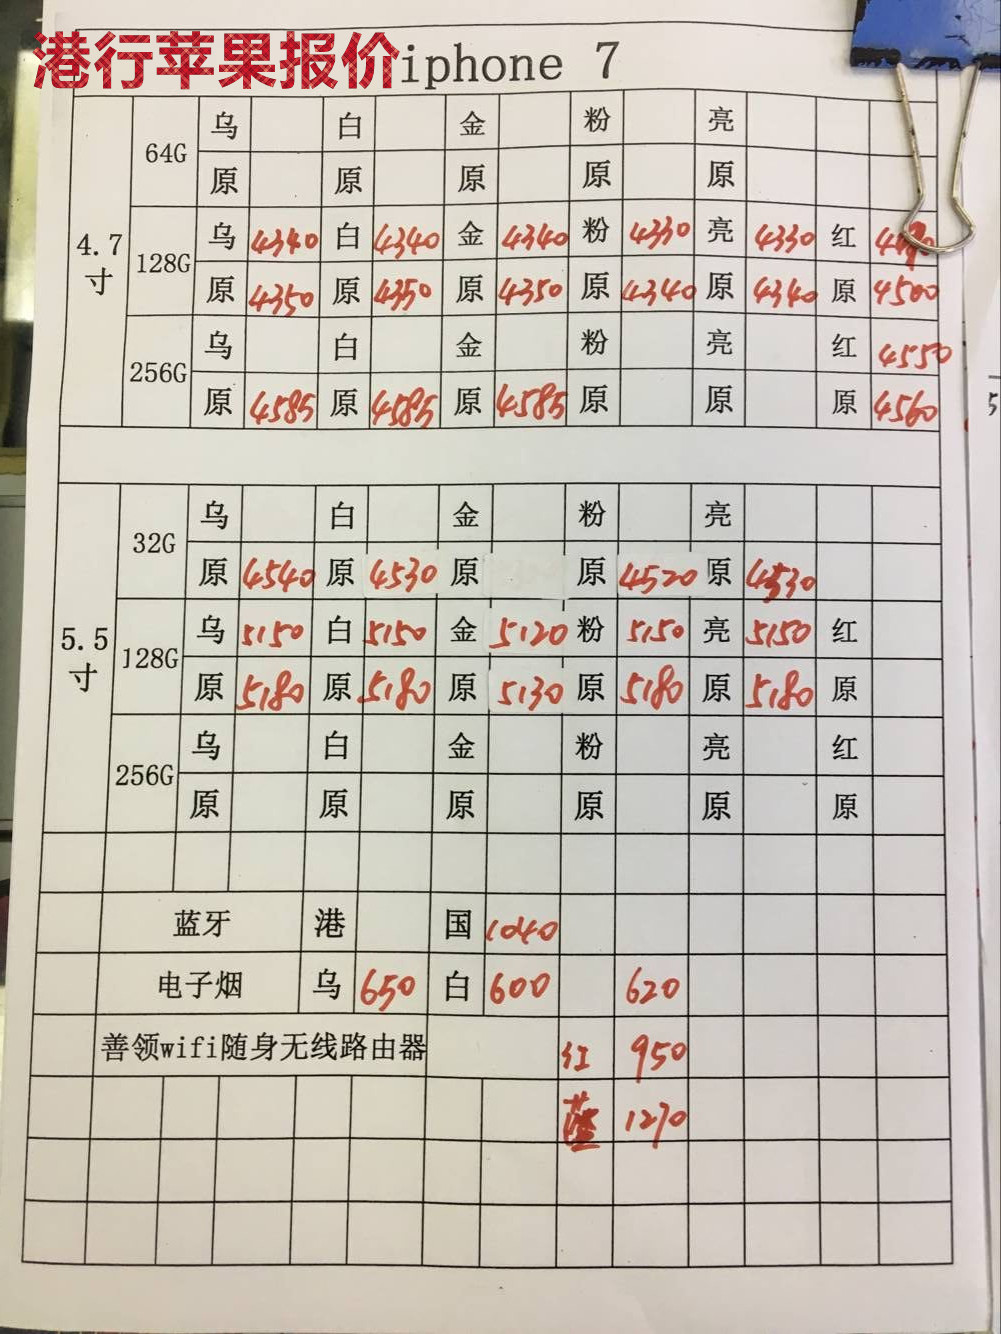 港行苹果报价iphone 7
乌 白 金 粉 亮
64G
原 原 原 原 原
4.7寸
乌 4340 白 4340 金 4340 粉 4330 亮 4330 红
128G
原 4350 原 4350 原 4350 原 4340 原 4340 原 4500
乌 白 金 粉 亮 红 4550
256G
原 4585 原 4585 原 4585 原 原 原 4560
乌 白 金 粉 亮
32G
原 4540 原 4530 原 原 4520 原 4530
5.5寸
乌 5150 白 5150 金 5120 粉 5150 亮 5150 红
128G
原 5180 原 5180 原 5130 原 5180 原 5180 原
乌 白 金 粉 亮 红
256G
原 原 原 原 原 原
蓝牙 港 国 1040
电子烟 乌 650 白 600 620
善领wifi随身无线路由器 红 950
1270
5